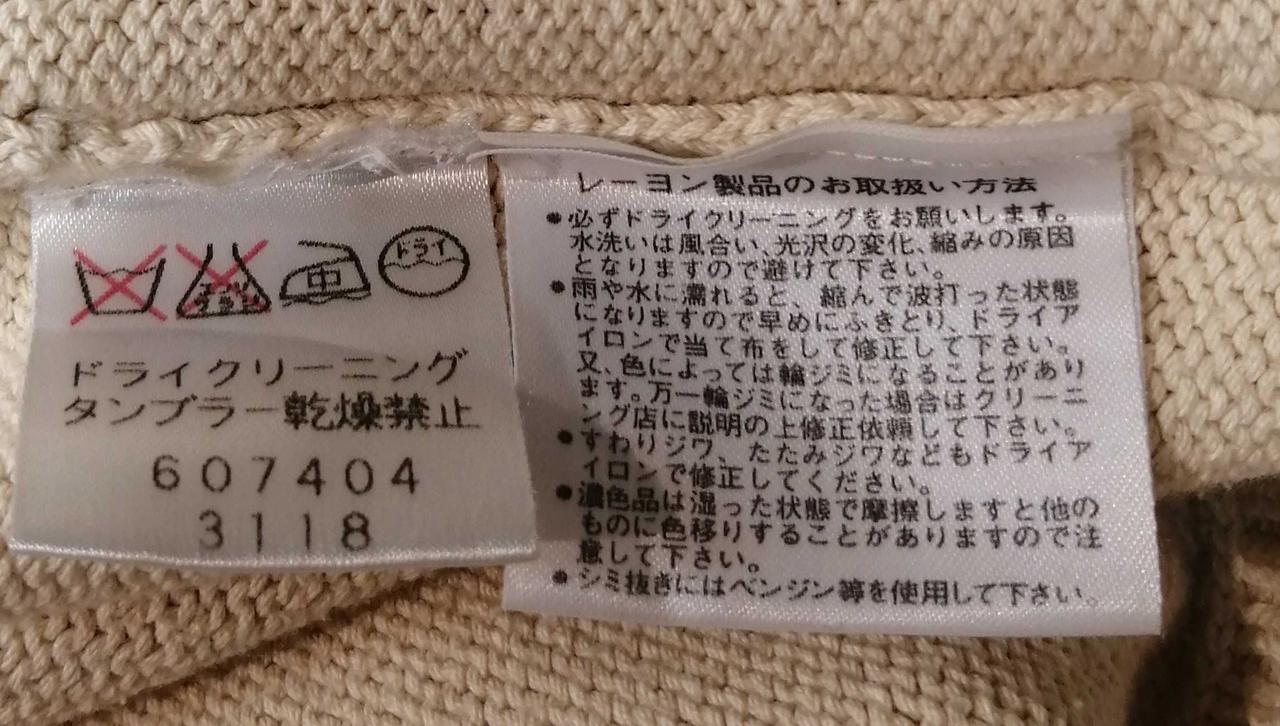 エンソ
サラシ
中
ドライ
ドライクリーニング
タンブラー乾燥禁止
607404
3118
レーヨン製品のお取扱い方法
●必ずドライクリーニングをお願いします。
水洗いは風合い、光沢の変化、縮みの原因
となりますので避けて下さい。
●雨や水に濡れると、縮んで波打った状態
になりますので早めにふきとり、ドライア
イロンで当て布をして修正して下さい。
又、色によっては輪ジミになることがあり
ます。万一輪ジミになった場合はクリーニ
ング店に説明の上修正依頼して下さい。
●すわりジワ、たたみジワなどもドライア
イロンで修正してください。
●濃色品は湿った状態で摩擦しますと他の
ものに色移りすることがありますので注
意して下さい。
●シミ抜きにはベンジン等を使用して下さい。